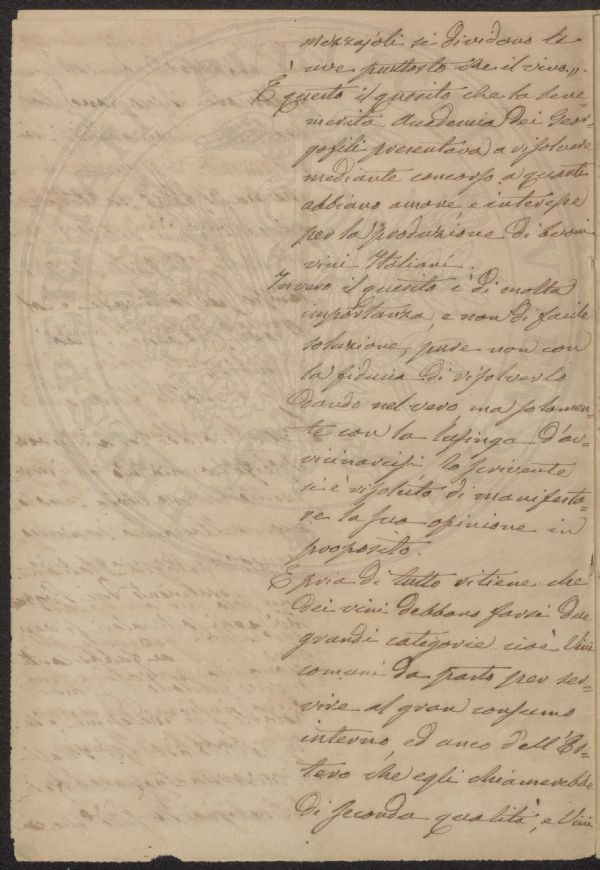 mezzajoli si dividono le
uve piuttosto che il vino,,.
È questo il quesito che la bene=
merita Accademia dei Geor=
gofili presentava a risolvere
mediante concorso a quanti
abbiano amore e interesse
per la produzione di buoni
vini Italiani.
Invero il quesito è di molta
importanza, e non di facile
soluzione, pure non con
la fiducia di risolverlo
dando nel vero, ma solamen=
te con la lusinga d'av=
vicinarcisi, lo scrivente
si è risoluto di manifesta=
re la sua opinione in
proposito.
E pria di tutto ritiene che
dei vini debbano farsi due
grandi categorie cioè Vini
comuni da pasto per ser=
vire al gran consumo
interno, ed anco dell'Es=
tero che egli chiamerebbe
di seconda qualità, e Vini